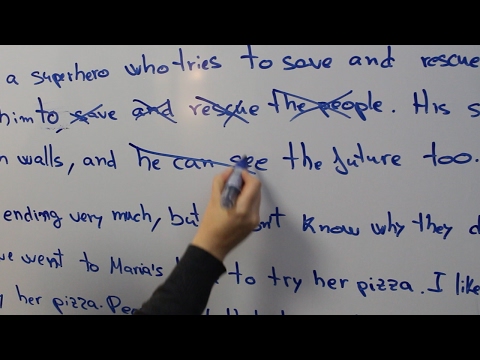 a superhero who tries to save and rescue
him to save and rescue the people. His s
walls, and he can see the future too.
ending very much, but know why they d
went to Maria's to try her pizza. I like
her pizza.